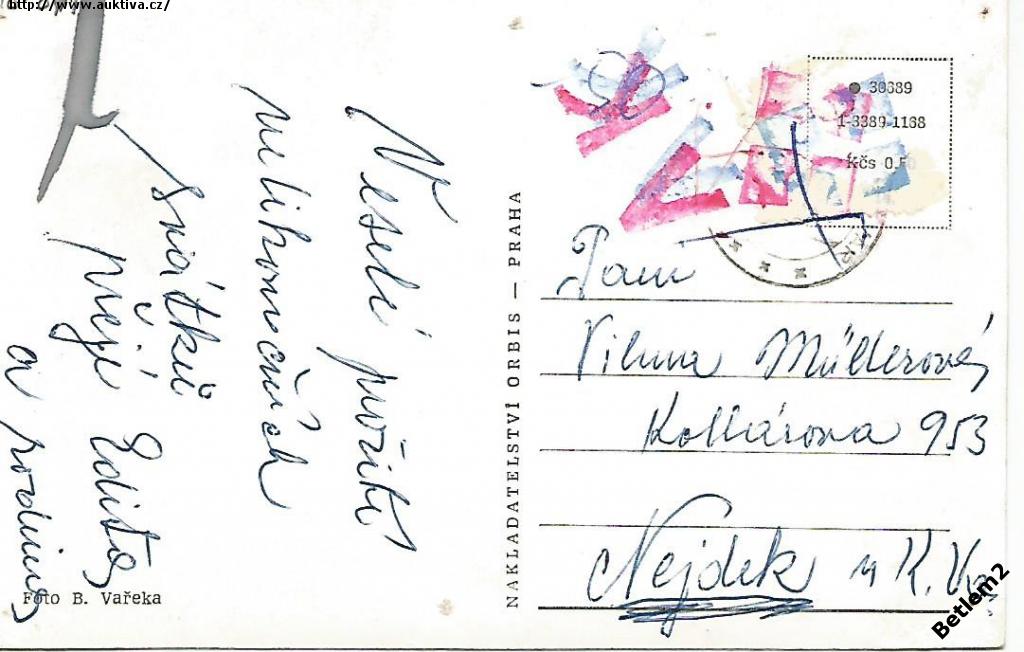 http://www.auktiva.cz/
Veselé požití
velikonočních
svátků
přeje Edita
a rodina
Foto B. Vařeka
NAKLADATELSTVÍ ORBIS — PRAHA
30689
1-3389-1168
Kčs 0.50
Paní
Vilma Müllerová
Kollárova 953
Nejdek u K. V.
Betlem2